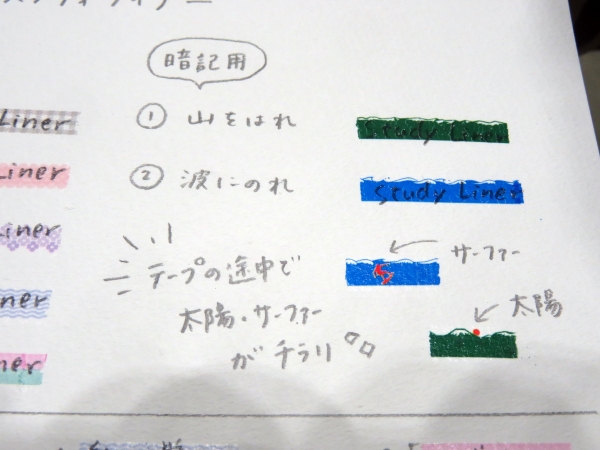 暗記用
① 山をはれ
Study Liner
② 波にのれ
Study Liner
Liner
Liner
Liner
Liner
ner
テープの途中で
太陽・サーファー
がチラリ
サーファー
太陽